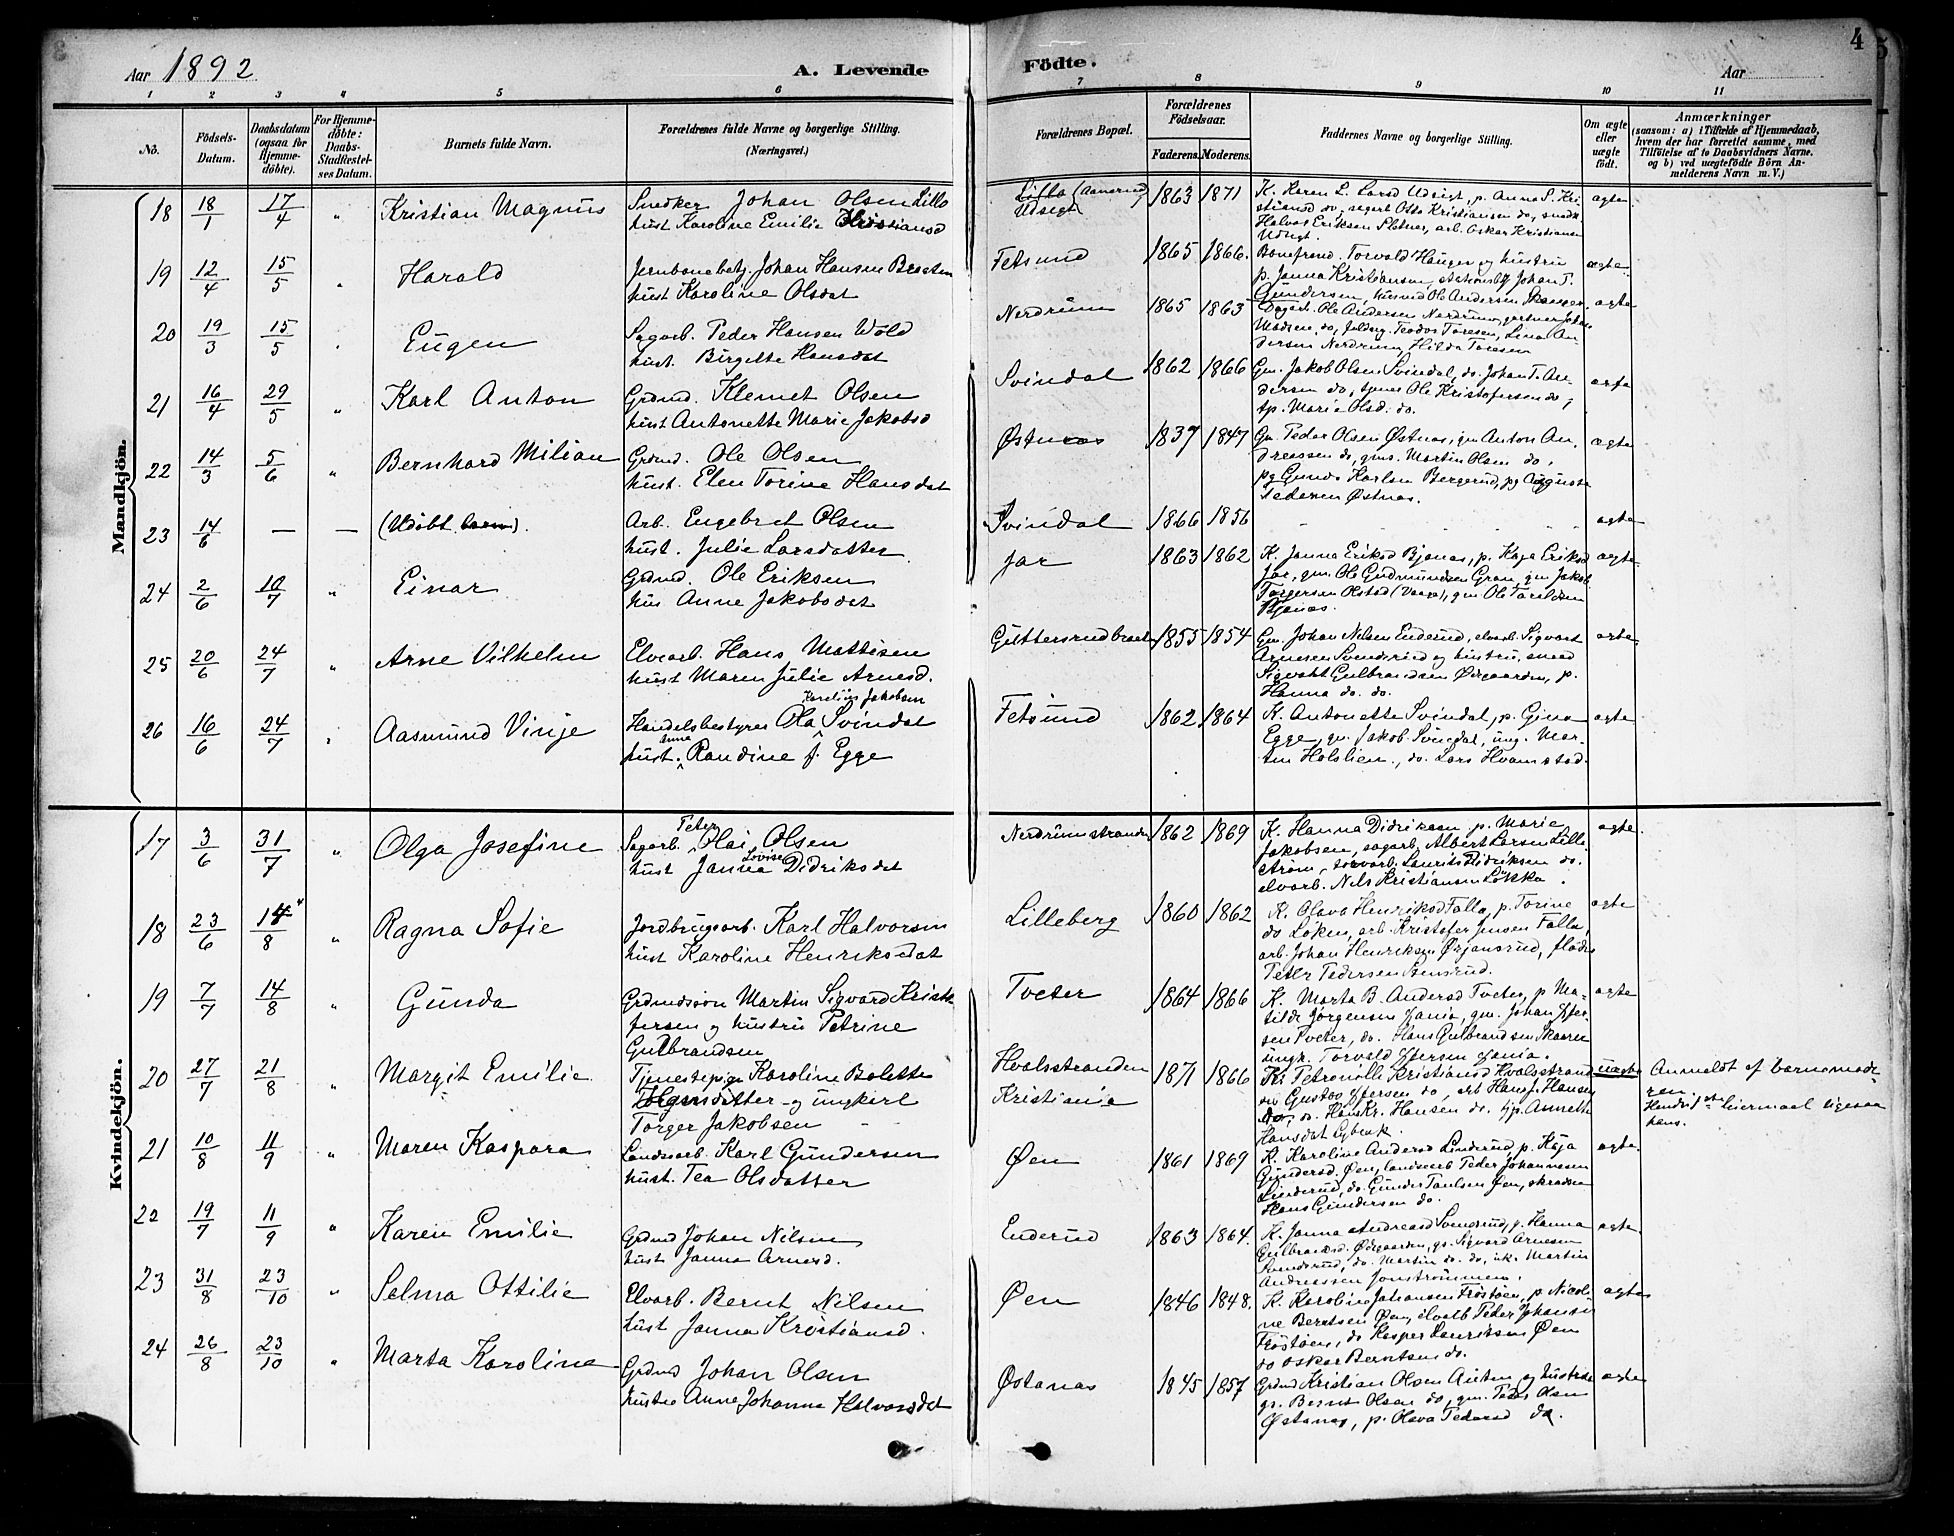 Aar 1892
A. Levende
Födte.
Aar
4
5
1 2 3 4 5 6 7 8 9 10 11
No.
Födsels-
Datum.
Daabsdatum
(ogsaa for
Hjemme-
döbte).
For Hjemme-
döbte:
Daabs-
Stadfæstel-
ses Datum.
Barnets fulde Navn.
Forældrenes fulde Navne og borgerlige Stilling.
(Næringsvei.)
Forældrenes Bopæl.
Forældrenes
Födselsaar.
Faderens. Moderens.
Faddernes Navne og borgerlige Stilling.
Om ægte
eller
uægte
födt.
Anmærkninger
(saasom: a) i Tilfælde af Hjemmedaab,
hvem der har forrettet samme, med
Tilföielse af to Daabsvidners Navne,
og b) ved uægtefödte Börn An-
melderens Navn m. V.)
Mandkjön.
18 18/1 17/4 " Kristian Magnus
Snedker Johan Olsen Lillo
hust Karoline Emilie Kristiansd
Lillo (Aamerud
Udsigt)
1863 1871
K. Karen L. Larsd Udsigt, p. Anna S. Kri-
stiansd do, Otto Kristiansen do,
Halvor Eriksen Sletner, arb. Oskar Kristiansen
Udsigt.
ægte
19 12/4 15/5 " Harald
Jernbanebetj. Johan Hansen Braaten
hust Karoline Olsdat
Fetsund
1865 1866.
Torvald Hauger og hustru
p. Janna Kristiansen, Johan T.
Gundersen, Ole Andersen
ægte
20 19/3 15/5 " Eugen
Sagarb. Peder Hansen Wold
hust. Birgitte Hansdat
Nerdrum
1865 1863
Dagarb. Ole Andersen Nerdrum, gartner Johan
Madsen do, Teodor Toresen, Lina An-
dersen Nerdrum, Hilda Toresen
ægte
21 16/4 29/5 " Karl Anton
Grdmd. Klemet Olsen
hust Antonette Marie Jakobsd
Svindal
1862 1866
Gm. Jakob Olsen Svindal, do. Johan T. An-
dersen do, tjener Ole Kristofersen do,
tp. Marie Olsd. do.
ægte
22 14/3 5/6 " Bernhard Milian
Grdmd. Ole Olsen
hust. Elen Torine Hansdat
Østnes
1837 1847
Gm. Peder Olsen Østnes, gm Anton An-
dreassen do, gms. Martin Olsen do,
pg Gunda Karlsen Bergerud, pg Auguste
Pedersen Østnes.
ægte
23 14/6 — — (Udöbt barn).
Arb. Engebret Olsen
hust. Julie Larsdatter
Svindal
1866 1856
" " "
ægte
24 2/6 10/7 " Einar
Grdmd. Ole Eriksen
hus Anne Jakobsdat
Jar
1863 1862
K. Janna Eriksd Bjanes, p. Kaja Eriksd
Jar, gm. Ole Gudmundsen Gran, gm Jakob
Torgersen Olstad (Vaage), gm Ole
Bjanes.
ægte
25 20/6 24/7 " Arne Vilhelm
Elvearb. Hans Mattisen
hust Maren Julie Arnesd.
Guttersrudbraaten
1855 1854
Gm. Johan Nilsen Enderud, elvarb. Sigvart
Arnesen Svendsrud og hustru, smed
Sigvald Gulbrandsen Ødegaarden, p.
Hanna do. do.
ægte
26 16/6 24/7 " Aasmund Vinje
Karelius Jakobsen
Handelsbestyrer Ola Svindal
Anna
hust. Randine f. Egge
Fetsund
1862 1864
K. Antonette Svindal, p. Gina
Egge, gm. Jakob Svindal, ung. Mar-
tin Holslien, do. Lars Hvamstad.
ægte
Kvindekjön.
17 3/6 31/7 " Olga Josefine
Peter
Sagarb. Olai Olsen
Lovise
hust Janna Didriksdat
Nerdrumstranden
1862 1869
K. Hanna Didriksen p. Marie
Jakobsen, sagarb. Albert Larsen Lille-
ström, Laurits Didriksen do.
elvarb. Nils Kristiansen Løkka.
ægte
18 23/6 14/8 " Ragna Sofie
Jordbrugsarb. Karl Halvorsen
hust Karoline Henriksdat
Lilleberg
1860 1862
K. Olava Henriksd Falla, p. Torine
do Løken, arb. Kristofer Jensen Falla,
arb. Johan Henriksen Ørjansrud,
Peter Pedersen
ægte
19 7/7 14/8 " Gunda
Grdmandssøn Martin Sigvard Kristo-
fersen og hustru Petrine
Gulbrandsen
Tveter
1864 1866
K. Marta B. Andersd Tveter, p. Ma-
tilde Jørgensen Xania, gm. Johan Iffer-
sen Tveter, do. Hans Gulbrandsen Skaaren
ungk. Torvald Iffersen Xania.
ægte
20 27/7 21/8 " Margit Emilie
Tjenestepige Karoline Bolette
Torgersdatter og ungkarl
Torger Jakobsen
Hvalsstranden
Kristiania
1871 1866
K. Petronille Kristiansd Hvalsstrand
Gustav Iffersen do, arb Hans J. Hansen
do, Hans Kr. Hansen do. tjp. Annette
Hansdat
uægte
Anmeldt af barnemode-
ren
Hendes 1st leiermaal ligesaa
hans.
21 10/8 11/9 " Maren Kaspara
Landearb. Karl Gundersen
hust. Tea Olsdatter
Øen
1861 1869
K. Karoline Andersd Linderud, p. Kaja
Gundersd. Øen, landearb Peder Johannesen
Linderud, do. Gunder Paulsen Øen, skrædder
Hans Gundersen do.
ægte.
22 19/7 11/9 " Karen Emilie
Grdmd Johan Nilsen
hust Janna Arnesd.
Enderud
1863 1864.
K. Janna Andreasd Svendsrud, p. Hanna
Gulbrandsd. Ødegaarden, gs. Sigvard Arnesen
Svendsrud, do. Martin do. do, uk. Martin
Andreassen Jonstrømmen.
ægte.
23 31/8 23/10 " Selma Ottilie
Elvarb. Bernt Nilsen
hust Janna Kristiansd.
Øen
1846 1848.
K. Karoline Johansen Frøstøen, p. Nicoli-
ne Berntsen Øen, elvarb Peder Johansen
Frøstøen, do Kasper Lauritsen Øen
do Oskar Berntsen do.
ægte
24 26/8 23/10 " Marta Karoline
Grdmd Johan Olsen
hustru Anne Johanna Halvorsdat
Østanes
1845 1857
Grdmd Kristian Olsen Austen og hustru
gs. Bernt Olsen do, gm. Peder Olsen
Østanes, p. Olava Pedersd do.
ægte